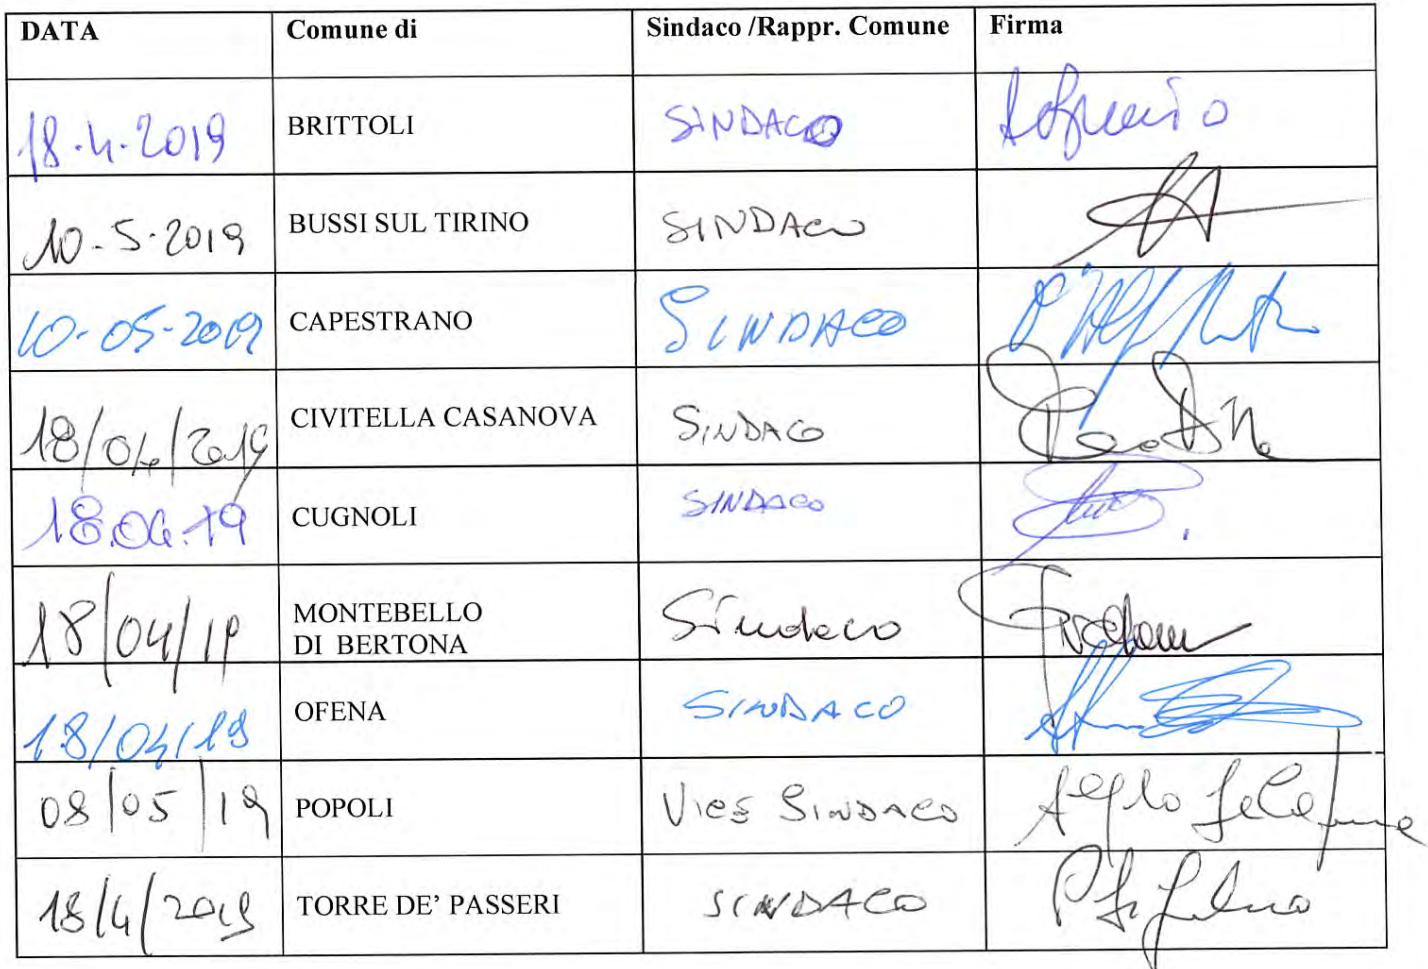 DATA Comune di Sindaco /Rappr. Comune Firma
18.4.2019 BRITTOLI SINDACO
10-5-2019 BUSSI SUL TIRINO SINDACO
10-05-2019 CAPESTRANO SINDACO
18/04/2019 CIVITELLA CASANOVA SINDACO
18.04.19 CUGNOLI SINDACO
18/04/19 MONTEBELLO Sindaco
DI BERTONA
18/04/19 OFENA SINDACO
08/05/19 POPOLI VICE SINDACO
18/4/2019 TORRE DE’ PASSERI SINDACO